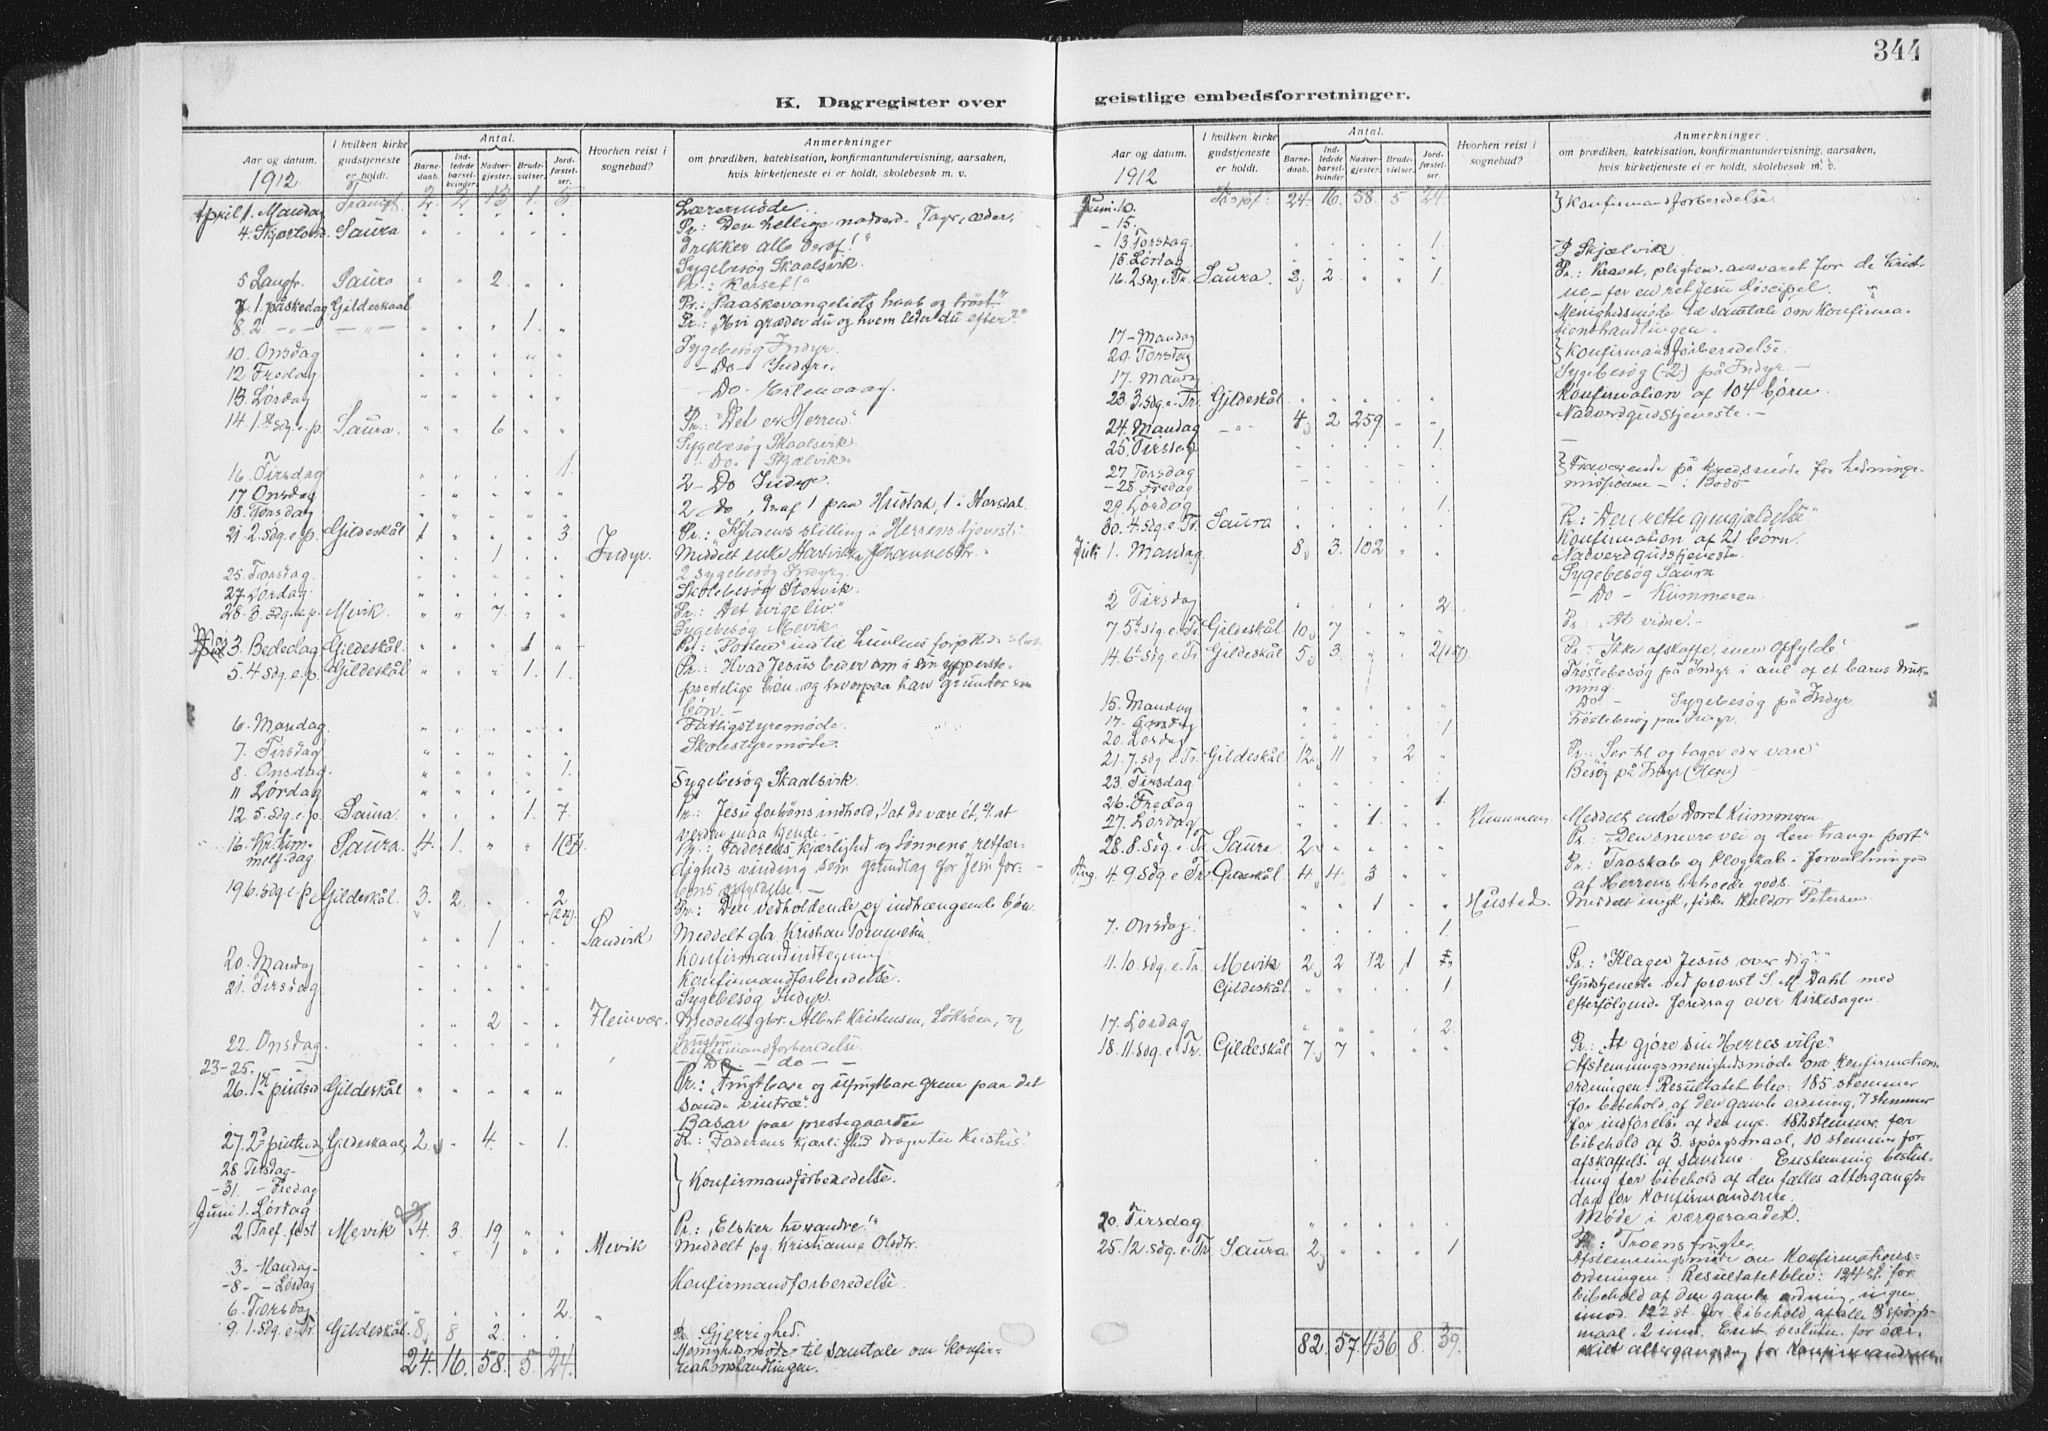 344
K. Dagregister over
geistlige embedsforretninger.
Aar og datum.
1912
I hvilken kirke gudstjeneste er holdt.
Antal.
Barne-daab.
Ind-ledede barsel-kvinder.
Nadver-gjester.
Brude-vielser.
Jord-fæstel-ser.
Hvorhen reist i sognebud?
Anmerkninger
om prædiken, katekisation, konfirmantundervisning, aarsaken,
hvis kirketjeneste ei er holdt, skolebesøk m. v.
Transpt. 2. 2 13 1. 5
April 1. Mandag Lærermøde.
4. Skjærtorsd. Saura Pr.: Den hellige nadverd. "Tager, æder,
drikker alle deraf!"
Sygebesøg Skaalsvik.
5 Langfr. Saura 2. Pr.: Korset!
7. 1. påskedag Gildeskaal Pr.: "Paaskevangeliets haab og trøst"
8. 2 - " - - " - 1. Pr.: "Hvi græder du og hvem leder du efter?"
10. Onsdag Sygebesøg Indyr.
12 Fredag - Do - Indyr.
13 Lørdag - Do -
14 1ste sdg. e. p. Saura. 6 Pr.: "Det er Herren."
Sygebesøg Skaalsvik
- Do. Skjælvik.
16. Tirsdag 1.
17 Onsdag 2 - Do Indyr.
18. Torsdag 2 Do, Hraf 1 paa Hustad, 1 i Horsdal.
21 2. sdg. e. p. Gildeskål 1 3. Pr.: Kristens stilling i Herrens tjeneste.
1 Indyr. Meddelt enke
25. Torsdag. 2 Sygebesøg Indyr.
27 Lørdag. Skolebesøg Storvik.
28. 3. sdg. e. p. Mevik. 7. Pr.: "Det evige liv."
Sygebesøg Mevik.
Mai 3. Bededag Gildeskål. 1
5. 4 sdg. e. p. Gildeskål 1. 1. Pr.: Hvad Jesus beder om i sin ypperste-
prestelige bøn, og hvorpaa han grunder sin
bøn. -
6. Mandag Fattigstyremøde.
7. Tirsdag Skolestyremøde.
8. Onsdag. 1.
11 Lørdag Sygebesøg Skaalsvik.
12 5. sdg. e. p. Saura. 1. 7. Pr.: Jesu forbøns indhold, 1/ at de være ét, 2. at
verden maa kende. -
16. Kr. him-melf.dag Saura. 4. 1. Pr.: Faderens kjærlighed og Sønnens retfær-
digheds vinding som grundlag for Jesu for-
bøns opfyldelse. -
19 6. sdg. e. p. Gildeskål. 3. 2. 2 Pr.: Den vedholdende og indtrængende bøn.
1 Sandvik Meddelt gbr Kristian Tommesen
20. Mandag Konfirmandindtegning
21. Tirsdag Konfirmandforberedelse.
Sygebesøg Indyr.
2 Fleinvær. Meddelt gbr. Albert Kristensen, Løksøen, og
hustru
22. Onsdag. Konfirmandforberedelse.
23-25. - Do - do - -
26. 1ste pintsd Gildeskål Pr.: Frugtbare og ufrugtbare grene paa det
sande vintræ".
Basar paa prestegaarden
27. 2. pintsd. Gildeskaal 2 4. 1. Pr.: Faderens kjærlighed drager til Kristus.
28 Tirsdag -
- 31. - Fredag } Konfirmandforberedelse.
Juni 1. Lørdag
2 Tref. fest Mevik 4. 3. 19 Pr.: "Elsker hverandre!"
1 Mevik Meddelt pg. Kristianna Olsdtr.
3 - Mandag -
- 8 - - Lørdag Konfirmandforberedelse.
6. Torsdag. 2.
9. 1. sdg. e. Tr. Gildeskål. 8 8 2. Pr.: Gjerrighed.
Menighedsmøde til samtale om Konfir-
mationshandlingen.
24. 16. 58. 5. 24.
Aar og datum.
1912
I hvilken kirke gudstjeneste er holdt.
Antal.
Barne-daab.
Ind-ledede barsel-kvinder.
Nadver-gjester.
Brude-vielser.
Jord-fæstel-ser.
Hvorhen reist i sognebud?
Anmerkninger
om prædiken, katekisation, konfirmantundervisning, aarsaken,
hvis kirketjeneste ei er holdt, skolebesøk m. v.
Trspt: 24. 16. 58. 5 24.
Juni 10. } Konfirmandforberedelse.
- 15.
- 13 Torstag. 1.
15 Lørdag I Skjælvik
16. 2 sdg. e. Tr. Saura. 2 2. 1. Pr.: Kravet, pligten, ansvaret for de krist-
ne - for en ret Jesu discipel.
Menighedsmøde til samtale om Konfirma-
tionshandlingen.
17 - Mandag
20. Torstag } Konfirmandforberedelse.
17. Mandag Sygebesøg (-2) på Indyr. -
23 3. sdg. e. Tr. Gildeskål Konfirmation af 104 børn.
24. Mandag - " - 4 2 259 Nadverdgudstjeneste. -
25. Tirsdag 1 -
27. Torsdag
- 28 Fredag } Fraværende på Kredsmøde for hedninge-
missionen - i Bodø
29. Lørdag 1.
30. 4. sdg. e. Tr. Saura Pr.: "Den rette gjengjældelse"
Konfirmation af 21 børn.
Juli 1. Mandag. 8 3. 102 Nadverdgudstjeneste
Sygebesøg Saura
- Do - Kummeren.
2 Tirsdag 2.
7. 5te sdg. e. Tr. Gildeskål 10 7 Pr.: At vidne. -
14. 6te sdg e. Tr Gildeskål 5 3. 2 Pr.: Ikke afskaffe, men opfylde
Trøstebesøg på Indyr i anl. af et barns druk-
ning.
15. Mandag - Do - Sygebesøg på Indyr
17. Onsdag 1 Trøstebesøg paa Indyr.
20. Lordag
21. 7. sdg. e. Tr. Gildeskål 12 11 2 Pr.: Ser til og tager eder vare
23. Tirsdag Besøg på Indyr
26. Fredag 1.
27. Lordag 1. Kummeren Meddelt enke Doret Kummeren
28. 8. sdg. e Tr. Saura 2 Pr.: - Den snevre vei og den trange port
Aug. 4. 9 sdg. e Tr. Gildeskål 4 4. 3 Pr.: Troskab og Klogskab i forvaltning
af Herrens betroede gods.
1 Hustad. Meddelt ungk., fisker Haldor Petersen
7. Onsdag. 1. -
10. sdg. e. Tr. Mevik 2 2 12 1 Pr.: "Klager Jesus over dig?"
Gildeskål 1 Gudstjeneste ved provst S. M Dahl med
efterfølgende foredrag over Kirkesagen.
17. Lordag 2.
18. 11. sdg. e. Tr. Gildeskål 7 7 Pr.: At gjøre sin Herres vilje
Afstemningsmenighedsmøde om Konfirmations-
ordningen. Resultatet blev: 185 stemmer
for bibehold af den gamle ordning, 7 stemmer
for indførelse af den nye. 182 stemmer for
bibehold af 3. spørgsmaal, 10 stemmer for
afskaffelse af samme. Enstemmig beslut-
ning for bibehold af den fælles altergangs-
dag for konfirmanderne.
20. Tirsdag Møde i værgeraadet.
25. 12. sdg. e. Tr. Saura 2 1 Pr.: Troens frugter.
Afstemningsmøde om Konfirmations-
ordningen. Resultatet blev: 124 st. for
bibehold af den gamle ordning, ingen
imod. 122 st. for bibehold af alle 3 spørgs-
maal, 2 imod. Enst. besluttn. for sær-
skilt altergangsdag for Konfirmanderne.
82. 57. 436 8. 39.